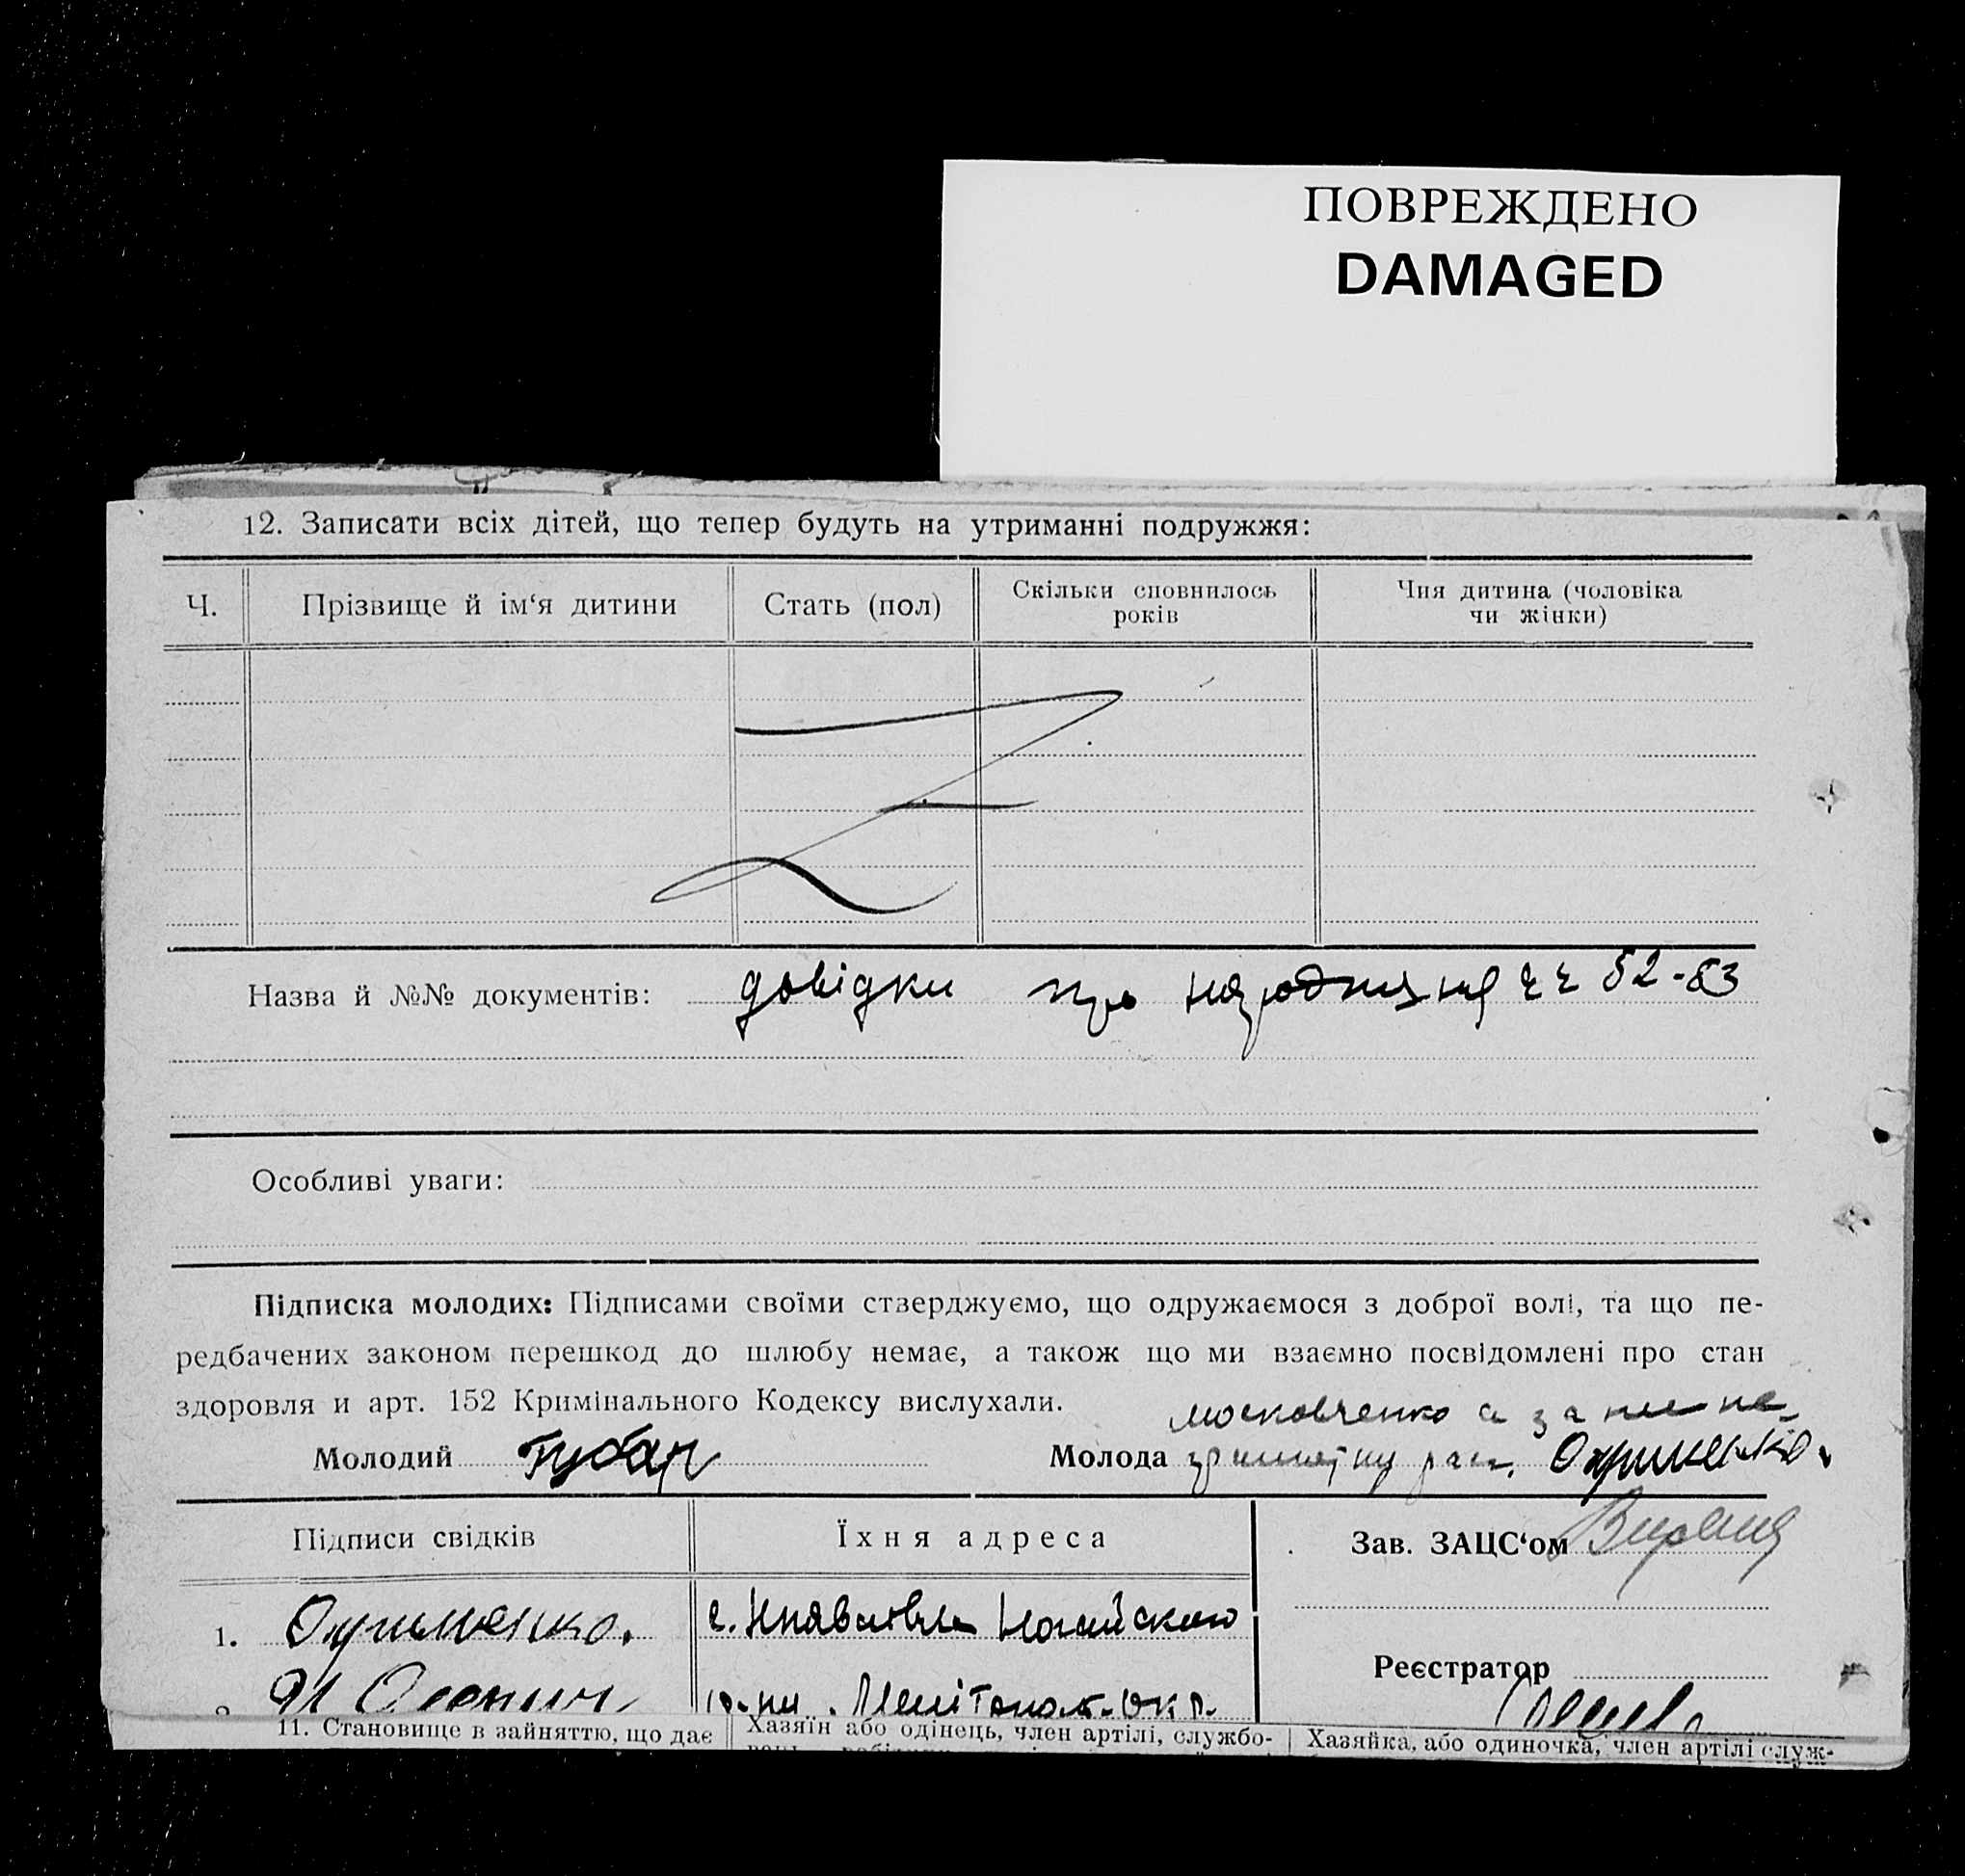 ПОВРЕЖДЕНО
DAMAGED
12. Записати всіх дітей, що тепер будуть на утриманні подружжя:
Ч.
Прізвище й ім‘я дитини
Стать (пол)
Скільки сповнилось
років
Чия дитина (чоловіка
чи жінки)
Назва й №№ документів: довідки про народження чч 52-53
Особливі уваги:
Підписка молодих: Підписами своїми стверджуємо, що одружаємося з доброї волі, та що пе-
редбачених законом перешкод до шлюбу немає, а також що ми взаємно посвідомлені про стан
здоровля и арт. 152 Кримінального Кодексу вислухали.
Московченко а за нее не-
Молодий Губар
Молода грамотну рас. Охрименко.
Підписи свідків
Їхня адреса
Зав. ЗАЦС‘ом
1. Охрименко.
с. Ногайского
Реєстратор
р-ну. Мелітопол. окр.
11. Становище в зайняттю, що дає
Хазяїн або одінець, член артілі, службо-
Хазяйка, або одиночка, член артілі служ-